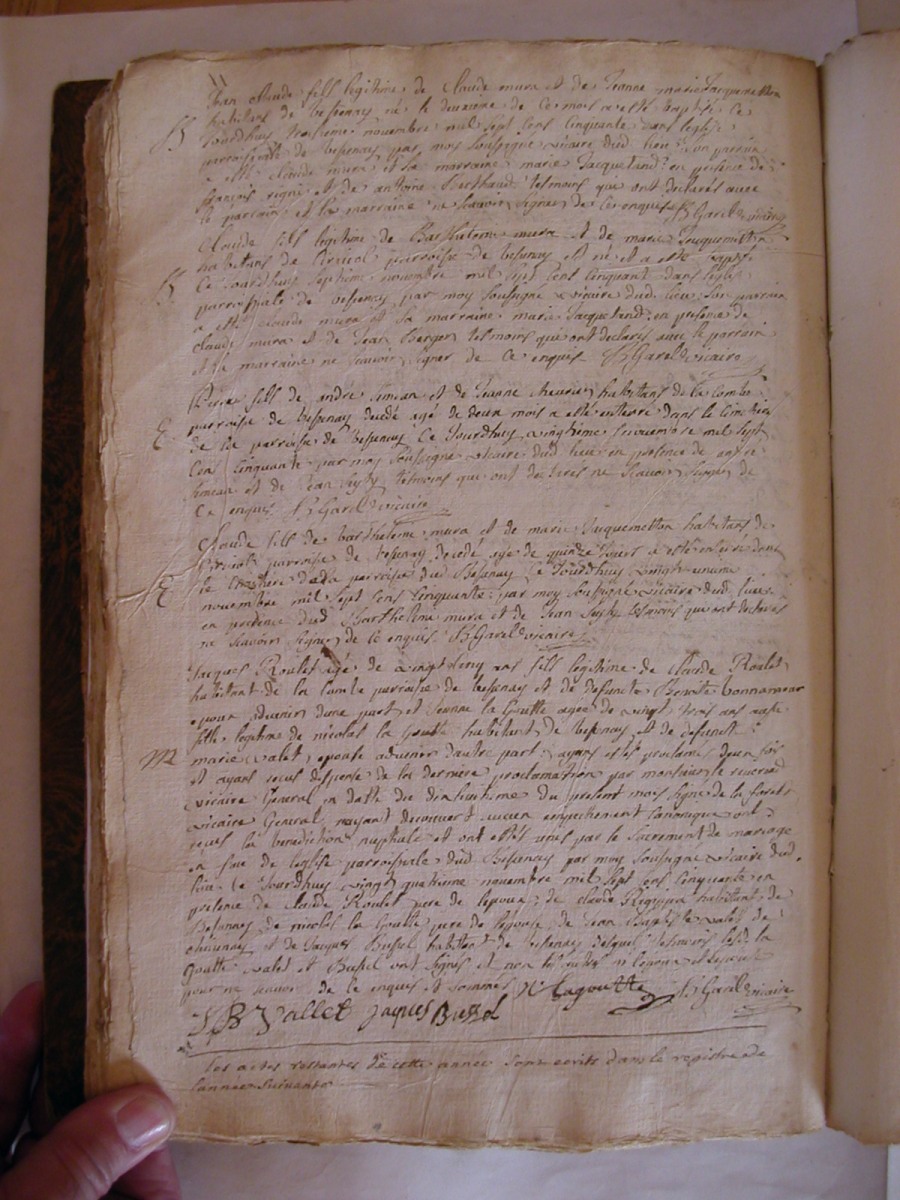 Jean claude fils legitime de claude mura et de Jeanne marie Jacquemetton
habitans de bessenay né le deuxieme de ce mois a esté baptisé ce
Jourdhuy troisieme novembre mil sept cens cinquante dans leglise
B parroissiale de bessenay par moy soussigne vicaire dud. lieu son parrain
a esté claude mura et la marraine marie Jacquetand en presence de
françois et de antoine Berthaud tesmoins que ont declares avec
le parrain et la marraine ne scavoir signer de ce enquis B Garel vicaire
Claude fils legitime de Barthelemi mura et de marie Jacquemetton
habitans de parroisse de bessenay est né et a esté baptisé
ce Jourdhuy septieme novembre mil sept cens cinquante dans leglise
B parroissiale de bessenay par moy soussigné vicaire dud. lieu son parrain
a esté claude mura et sa marraine marie Jacquetand en presence de
claude mura et de Jean Berger tesmoins qui ont declarés avec le parrain
et la marraine ne scavoir signer de ce enquis B Garel vicaire
Pierre fils de andre simean et de Jeanne habitans de la combe
parroisse de bessenay decedé agé de deux mois a esté enterré dans le cimetiere
E de la parroisse de bessenay ce Jourdhuy vingtieme novembre mil sept
cens cinquante par moy soussigné vicaire dud. lieu en presence de andre
simean et de Jean tesmoins que ont declarés ne scavoir signer de
ce enquis B Garel vicaire
Claude fils de barthelemi mura et de marie Jacquemetton habitans de
parroisse de bessenay decedé agé de quinze Jours a esté enterré dans
E le cimetiere de la parroisse dud. Bessenay ce Jourdhuy vingt unieme
novembre mil sept cens cinquante par moy soussigné vicaire dud. lieu
en presence dud. Barthelemi mura et de Jean tesmoins qui ont declarés
ne scavoir signer de ce enquis B Garel vicaire
Jacques Roulet agé de vingt cinq ans fils legitime de claude Roulet
habitant de la combe parroisse de bessenay et de defuncte Benoite bonnamour
epoux advenir dune part, et Jeanne la Goutte agee de vingt trois ans aussi
fille legitime de nicolas la Goutte habitant de bessenay et de defuncte
M marie valet epouse advenir dautre part, ayans estés proclames deux fois
et ayant receu dispense de la derniere proclamation par monsieur le reverend
vicaire General en datte du dixhuitieme du present mois signé de la forest
vicaire General nayant decouvert aucun empeschement canonique ont
receu la benediction nuptiale et ont estés unis par le sacrement de mariage
en face de leglise parroissiale dud. Bessenay par moy soussigné vicaire dud.
lieu ce Jourdhuy vingt quatrieme novembre mil sept cens cinquante en
presence de claude Roulet pere de lepoux, de claude habitant de
Bessenay, de nicolas la Goutte pere de lepouse, de Jean Baptiste valet de
et de Jacques Bussel habitant de bessenay desquels tesmoins lesd. la
Goutte valet et Bussel ont signés et non les autres ni lepoux et lepouse
pour ne scavoir de ce enquis et sommés N Lagoutte B Garel vicaire
J B Vallet Jacques Bussel
Les actes restantes de cette année sont ecrits dans le registre de
lannee suivante